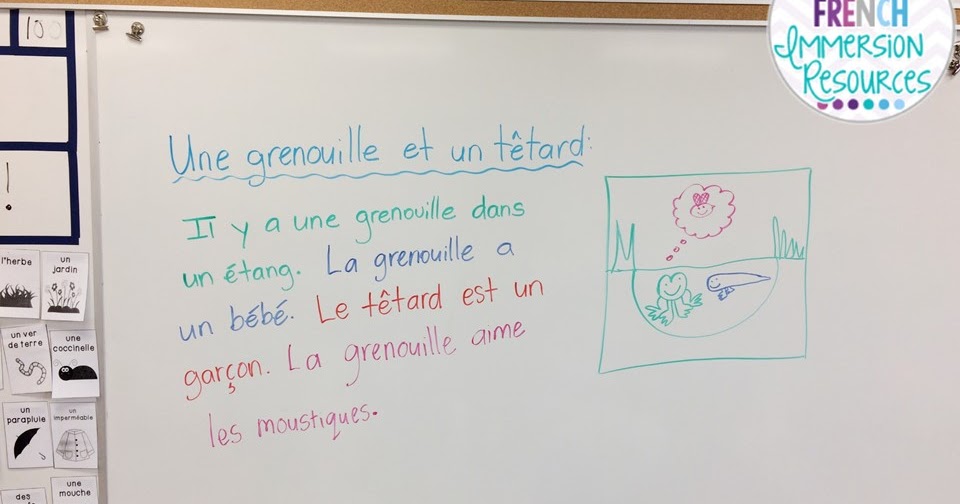 100
!
FRENCH
IMMERSION
RESOURCES
Une grenouille et un têtard:
Il y a une grenouille dans
un étang. La grenouille a
un bébé. Le têtard est un
garçon. La grenouille aime
les moustiques.
l'herbe
un
jardin
un ver
de terre
une
coccinelle
un
parapluie
un
imperméable
des
une
mouche